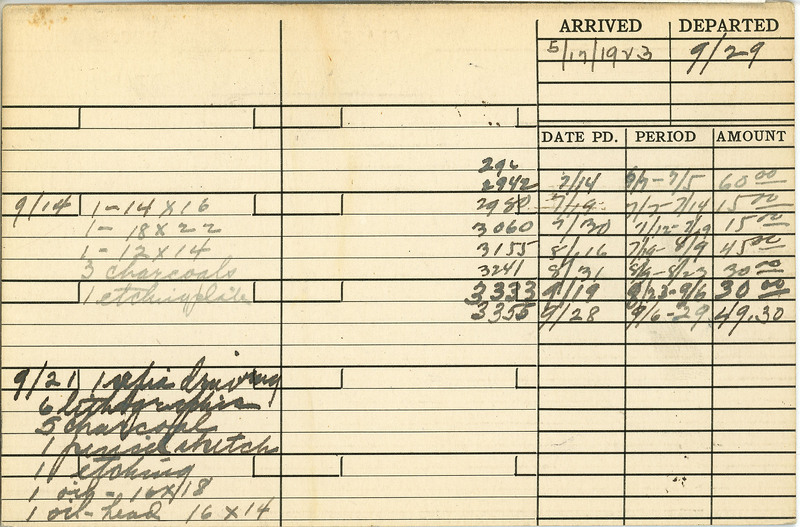 ARRIVED DEPARTED
5/17/1923 9/29
DATE PD. PERIOD AMOUNT
294
2942 7/14 7/5 60.00
9/14 1-14 x 16 2980 7/19 7/7-7/14 15.00
1-18 x 22 3060 7/30 7/12-7/19 15.00
1-12 x 14 3155 8/16 7/19-8/9 45.00
3 charcoals 3241 8/31 8/9-8/23 30.00
1 etching plate 3333 9/19 8/23-9/6 30.00
3355 9/28 9/6-29 49.30
9/21 1 sepia drawing
6 lithographs
5 charcoal
1 pencil sketch
1 etching
1 oil-16x18
1 oil-head 16 x 14